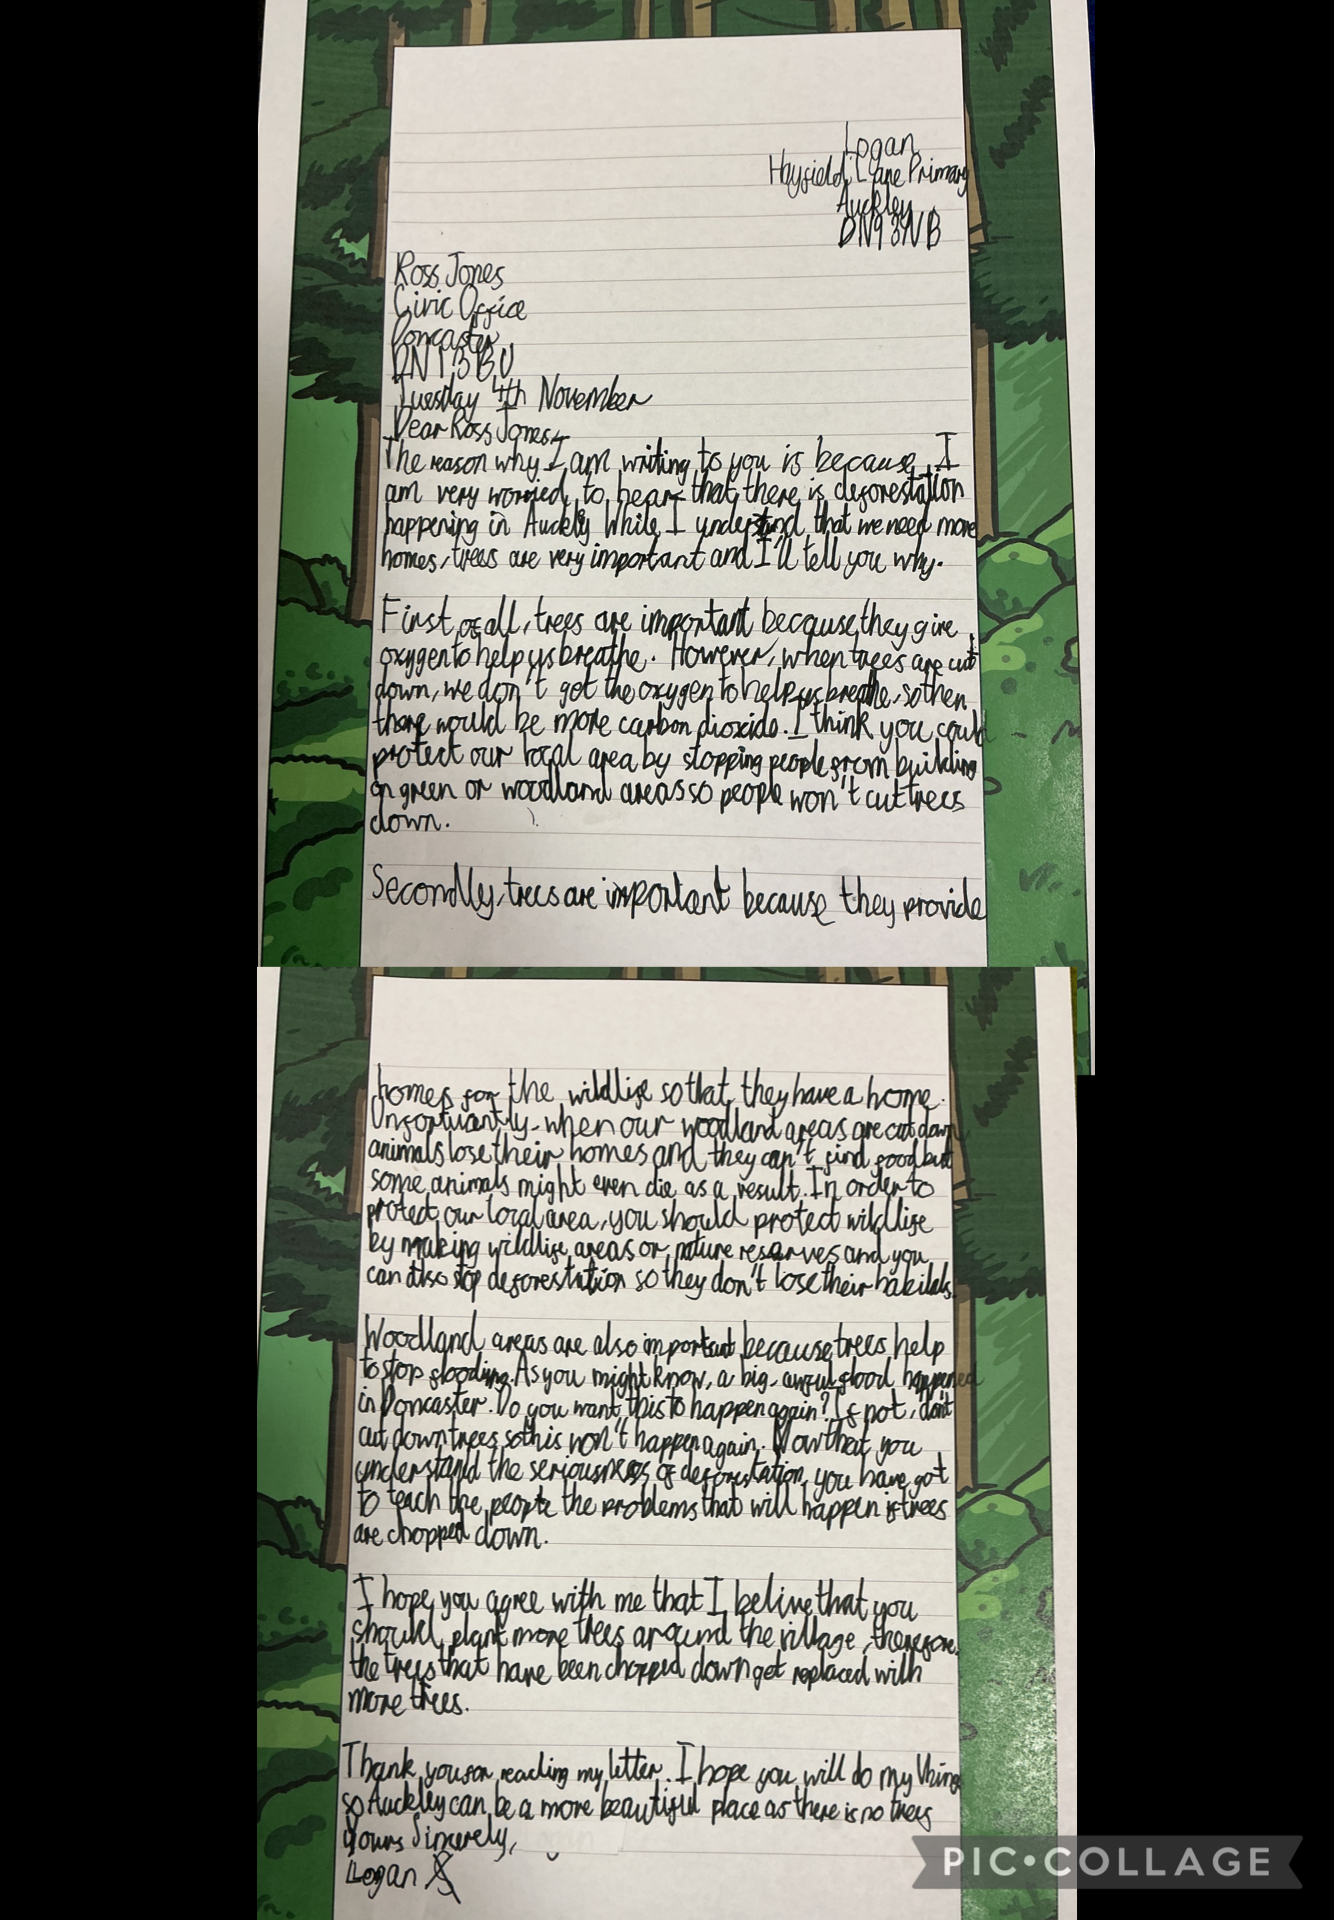 Logan
Hayfield Lane Primary
Auckley
DN9 3NB
Ross Jones
Civic Office
Doncaster
DN1 3BU
Tuesday 4th November
Dear Ross Jones,
The reason why I am writing to you is because, I
am very worried to hear that there is deforestation
happening in Auckly. While I understand that we need more
homes, trees are very important and I'll tell you why.
First of all, trees are important because they give
oxygen to help us breathe. However, when trees are cut
down, we don't get the oxygen to help us breathe, so then
there would be more carbon dioxide. I think you could
protect our local area by stopping people from building
on green or woodland areas so people won't cut trees
down.
Secondly, trees are important because they provide
homes for the wildlife so that they have a home.
Unfortuantly, when our woodland areas are cut down
animals lose their homes and they can't find food but
some animals might even die as a result. In order to
protect our local area, you should protect wildlife
by making wildlife areas or nature reserves and you
can also stop deforestation so they don't lose their
Woodland areas are also important because trees help
to stop flooding. As you might know, a big, awful flood happened
in Doncaster. Do you want this to happen again? If not, don't
cut down trees so this won't happen again. Now that you
understand the seriousness of deforestation, you have got
to teach the people the problems that will happen if trees
are chopped down.
I hope you agree with me that I belive that you
should plant more trees around the village, therefore,
the trees that have been chopped down get replaced with
more trees.
Thank you for reading my letter. I hope you will do my
so Auckley can be a more beautiful place as there is no trees
Yours Sincerely,
Logan
PIC•COLLAGE